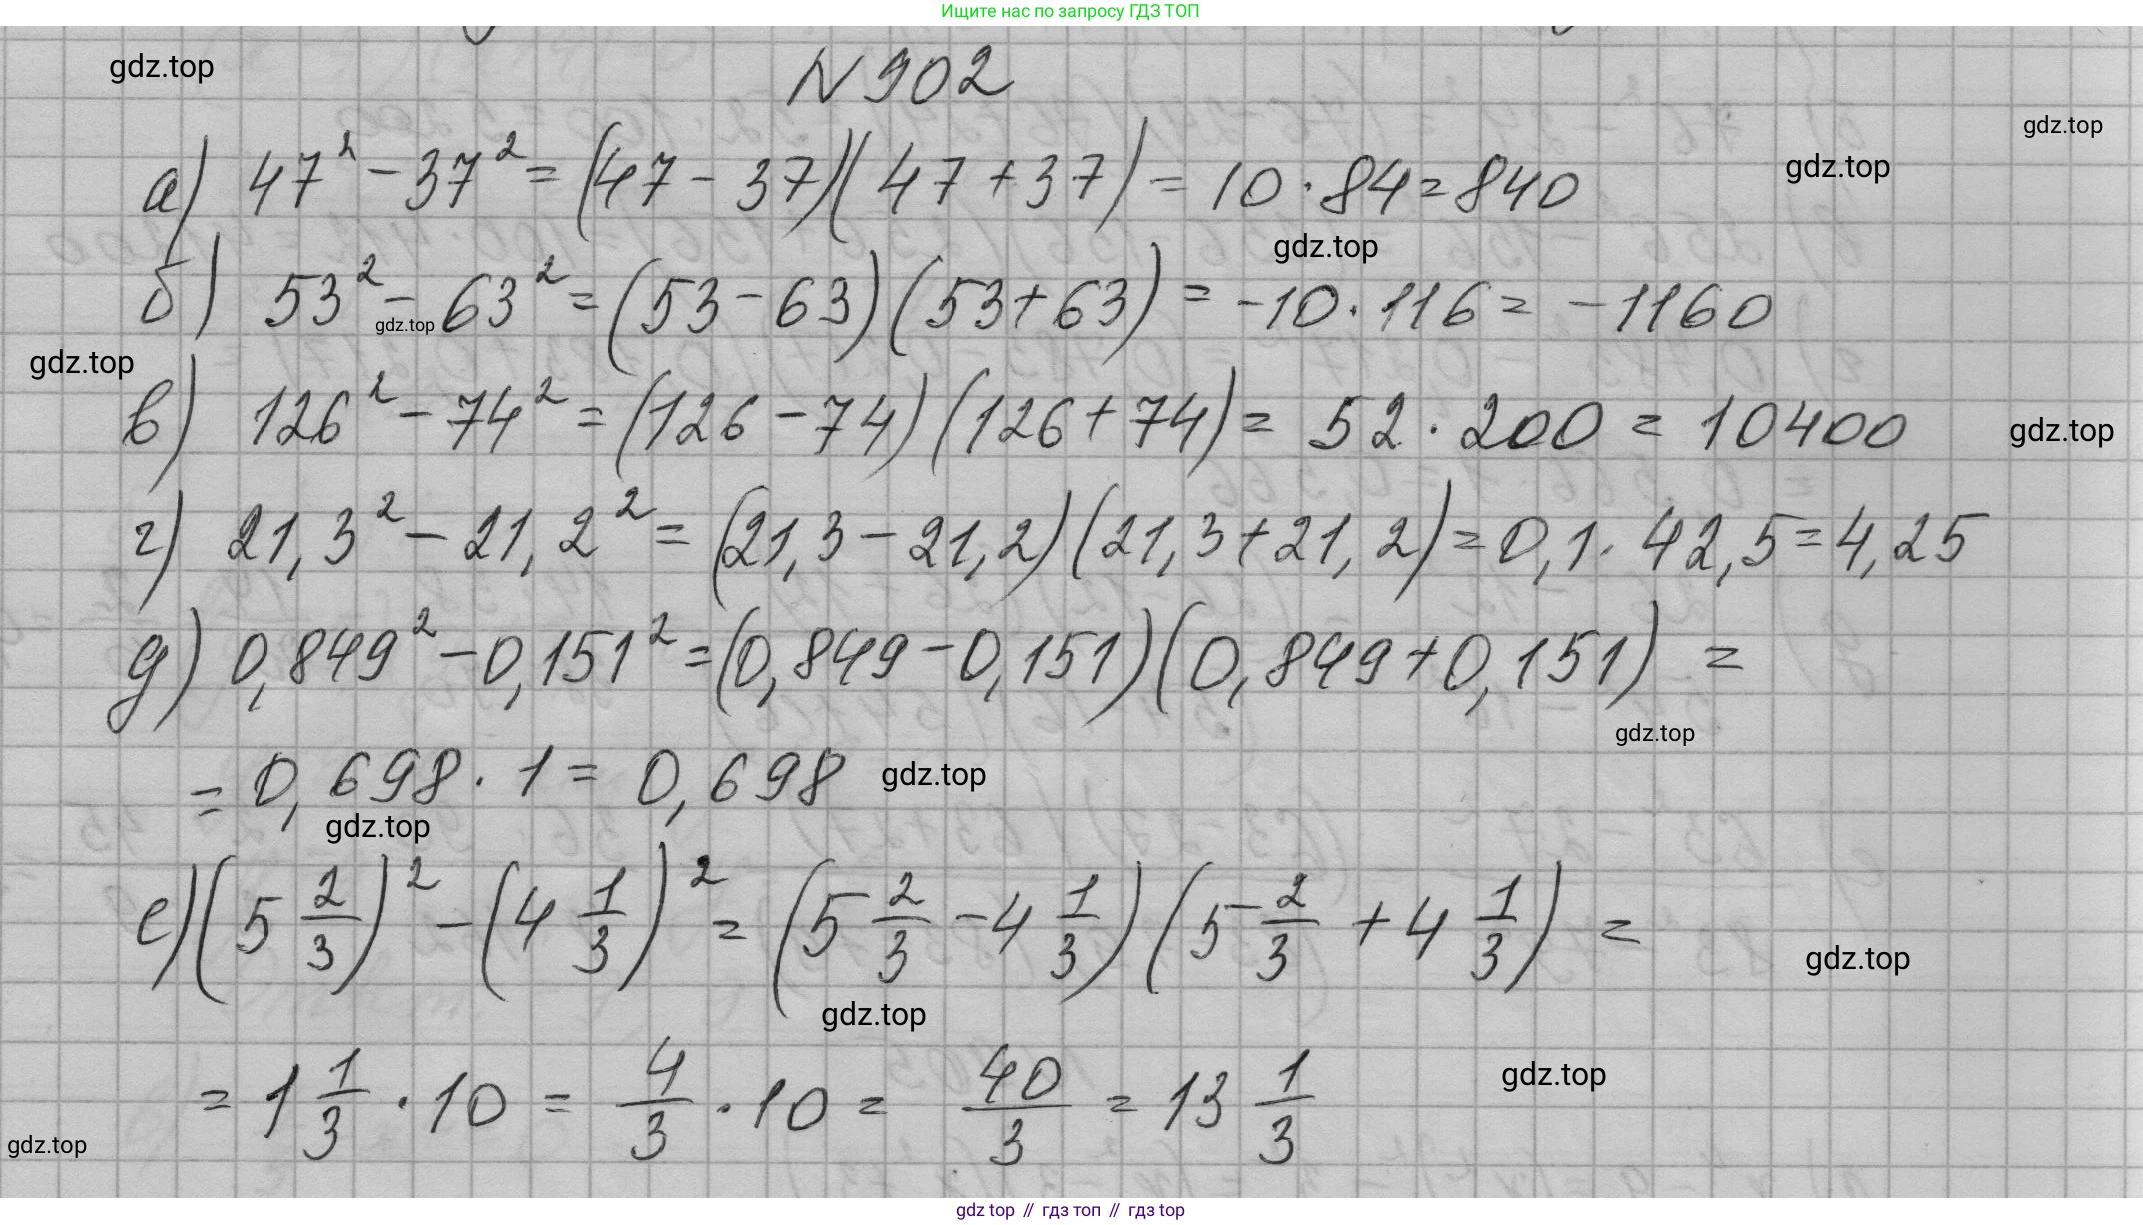 Ищите нас по запросу ГДЗ ТОП
N 902
gdz.top
gdz.top
gdz.top
а) 47² - 37² = (47 - 37)(47 + 37) = 10 · 84 = 840
gdz.top
б) 53² - 63² = (53 - 63)(53 + 63) = -10 · 116 = -1160
gdz.top
gdz.top
в) 126² - 74² = (126 - 74)(126 + 74) = 52 · 200 = 10400
gdz.top
г) 21,3² - 21,2² = (21,3 - 21,2)(21,3 + 21,2) = 0,1 · 42,5 = 4,25
д) 0,849² - 0,151² = (0,849 - 0,151)(0,849 + 0,151) =
gdz.top
= 0,698 · 1 = 0,698
gdz.top
gdz.top
е) (5 2/3)² - (4 1/3)² = (5 2/3 - 4 1/3)(5 2/3 + 4 1/3) =
gdz.top
gdz.top
= 1 1/3 · 10 = 4/3 · 10 = 40/3 = 13 1/3
gdz.top
gdz.top
gdz top // гдз топ // gdz top